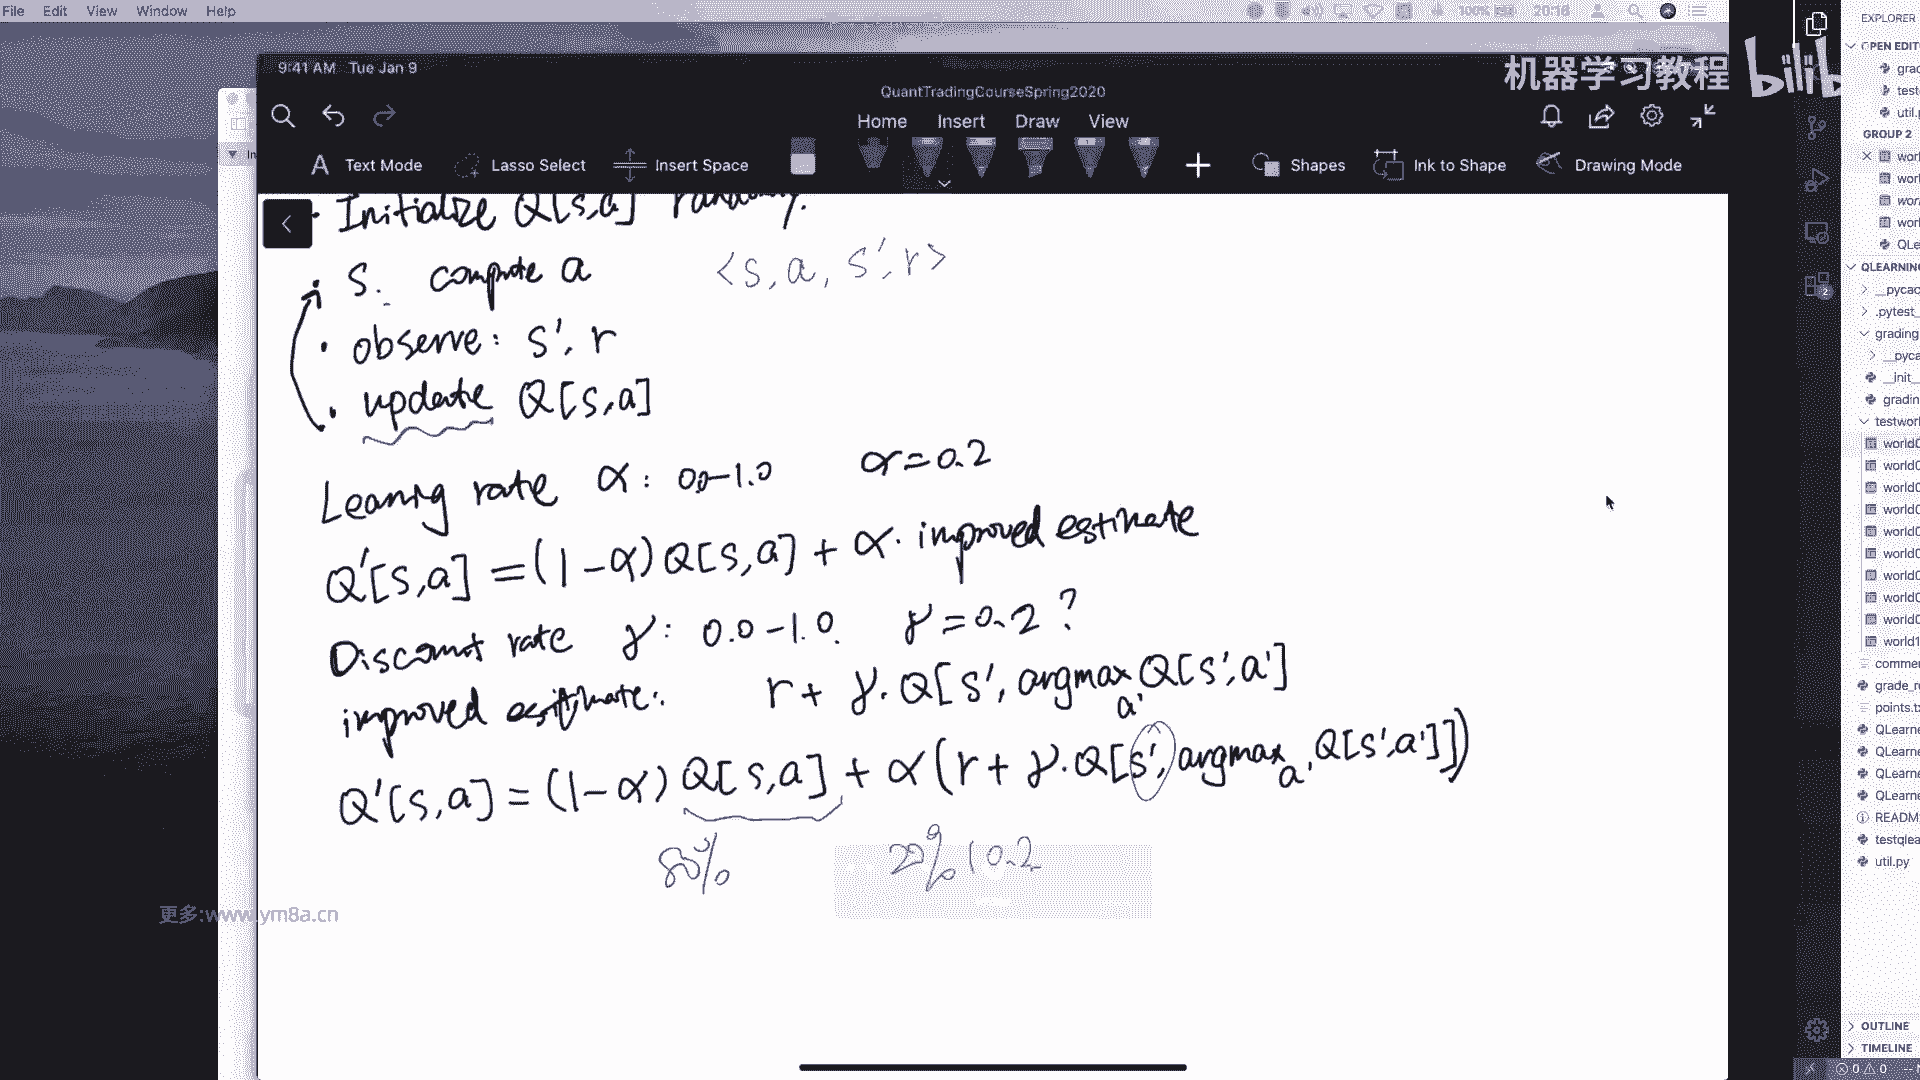 File Edit View Window Help
100% 20:16
9:41 AM Tue Jan 9
QuantTradingCourseSpring2020
机器学习教程 bilib
Home Insert Draw View
Text Mode Lasso Select Insert Space Shapes Ink to Shape Drawing Mode
· Initialize Q[s,a] randomly.
· s. compute a <s, a, s', r>
· observe: s'. r
· update Q[s,a]
Learning rate α: 0.0-1.0 α=0.2
Q'[s,a] = (1-α) Q[s,a] + α· improved estimate
Discount rate γ: 0.0-1.0. γ=0.2 ?
improved estimate: r + γ·Q[s', argmax a' Q[s',a']
Q'[s,a] = (1-α) Q[s,a] + α(r + γ·Q[s', argmax a' Q[s',a']])
80% 20% 0.2
更多:www.ym8a.cn
EXPLORER
OPEN EDIT
grad
test
util.p
GROUP 2
worl
worl
worl
worl
QLe
QLEARNING
__pycac
.pytest_
grading
__pyca
__init__
gradin
testworl
world0
world0
world0
world0
world0
world0
world0
world0
world0
world1
comme
grade_r
points.tx
QLearne
QLearne
QLearne
QLearne
README
testqlea
util.py
OUTLINE
TIMELINE
0 0
2